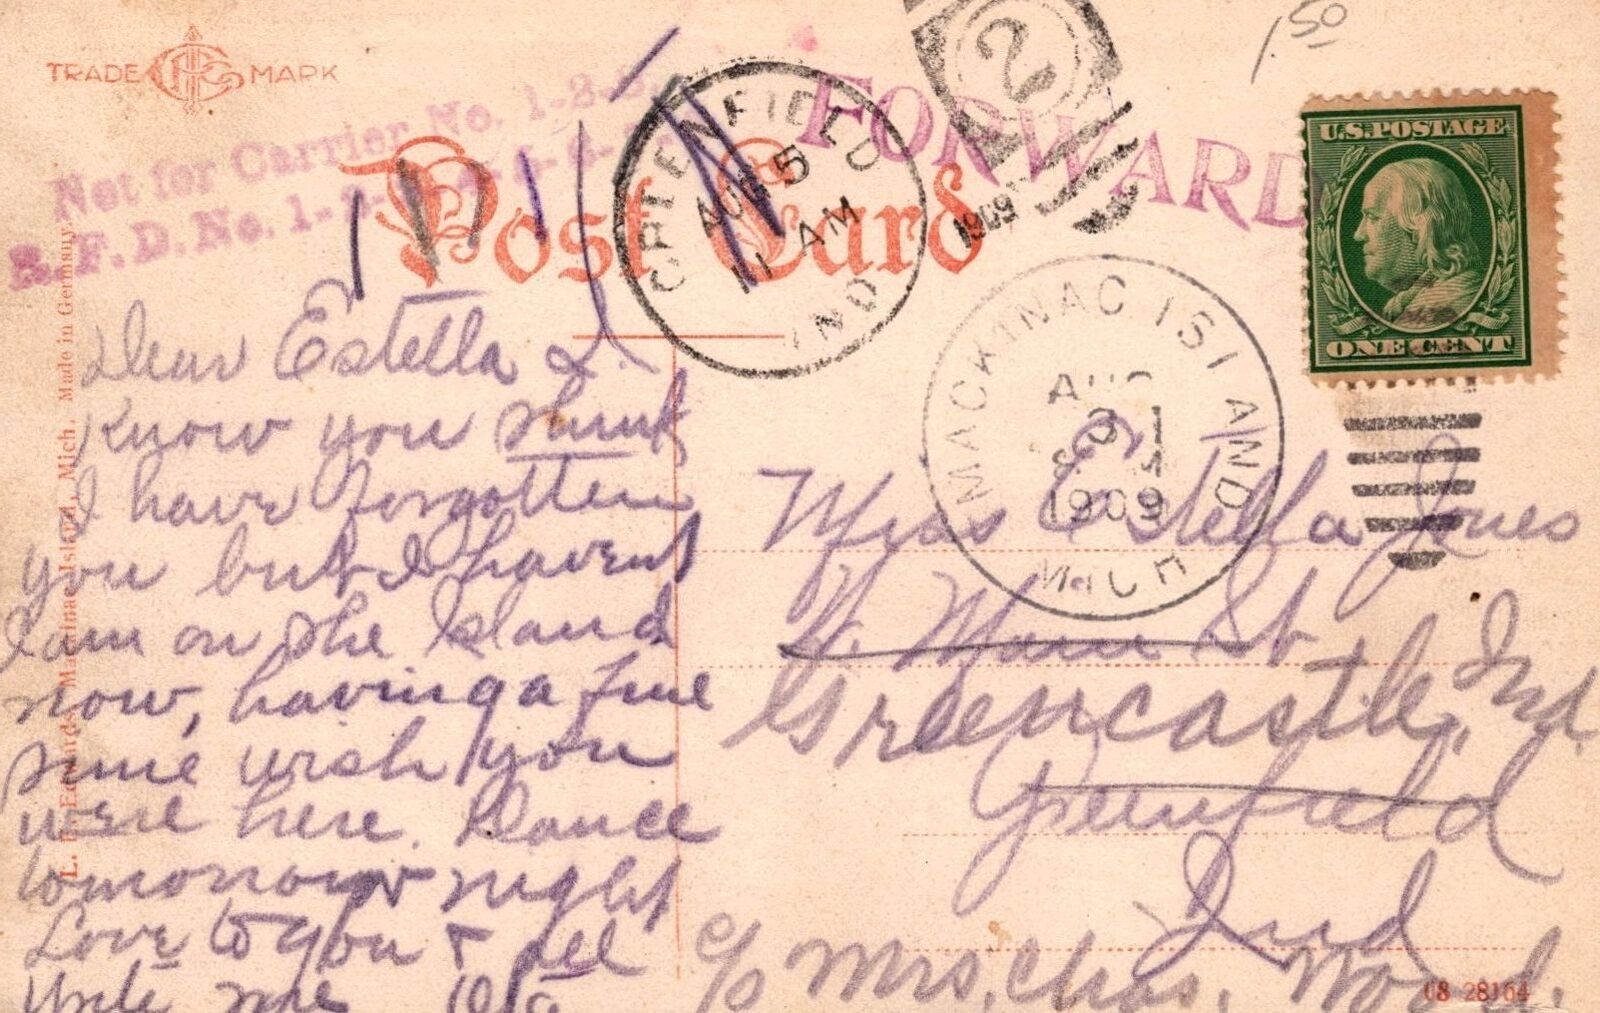 TRADE MARK
Not for Carrier No. 1-2-3
R. F. D. No. 1-2-
Post Card
FORWARD
GREENFIELD
AUG 5
11 AM
IND
2
1909
1.50
U.S. POSTAGE
ONE CENT
MACKINAC ISLAND
AUG
31
1909
MICH
Dear Estella I.
know you think
I have forgotten
you but I havent
I am on the Island
now, having a fine
time wish you
were here. Dance
tomorrow night
Love to you & all
Write me
Miss Estella Jones
W. Main St
Greencastle, Ind.
Greenfield
Ind
c/o Mrs. Chas. Wood.
L. D. Edwards, Mackinac Island, Mich. Made in Germany.
08 28164